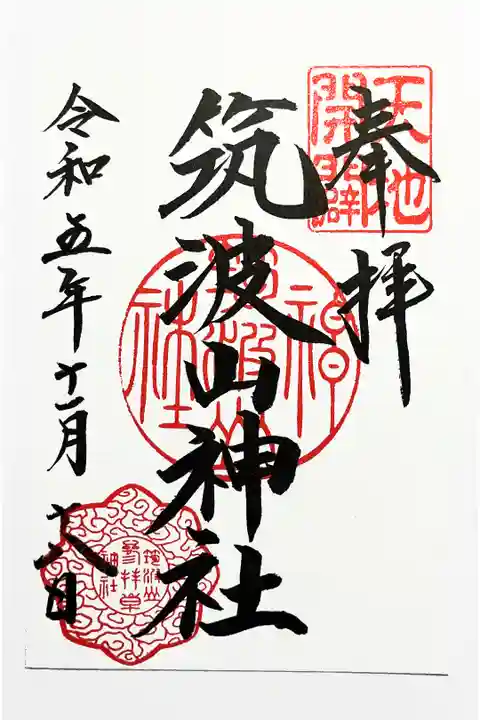 奉拝
天地
開闢
筑波山神社
筑波山
神社
筑波山
參拝章
神社
令和五年十一月
十八日